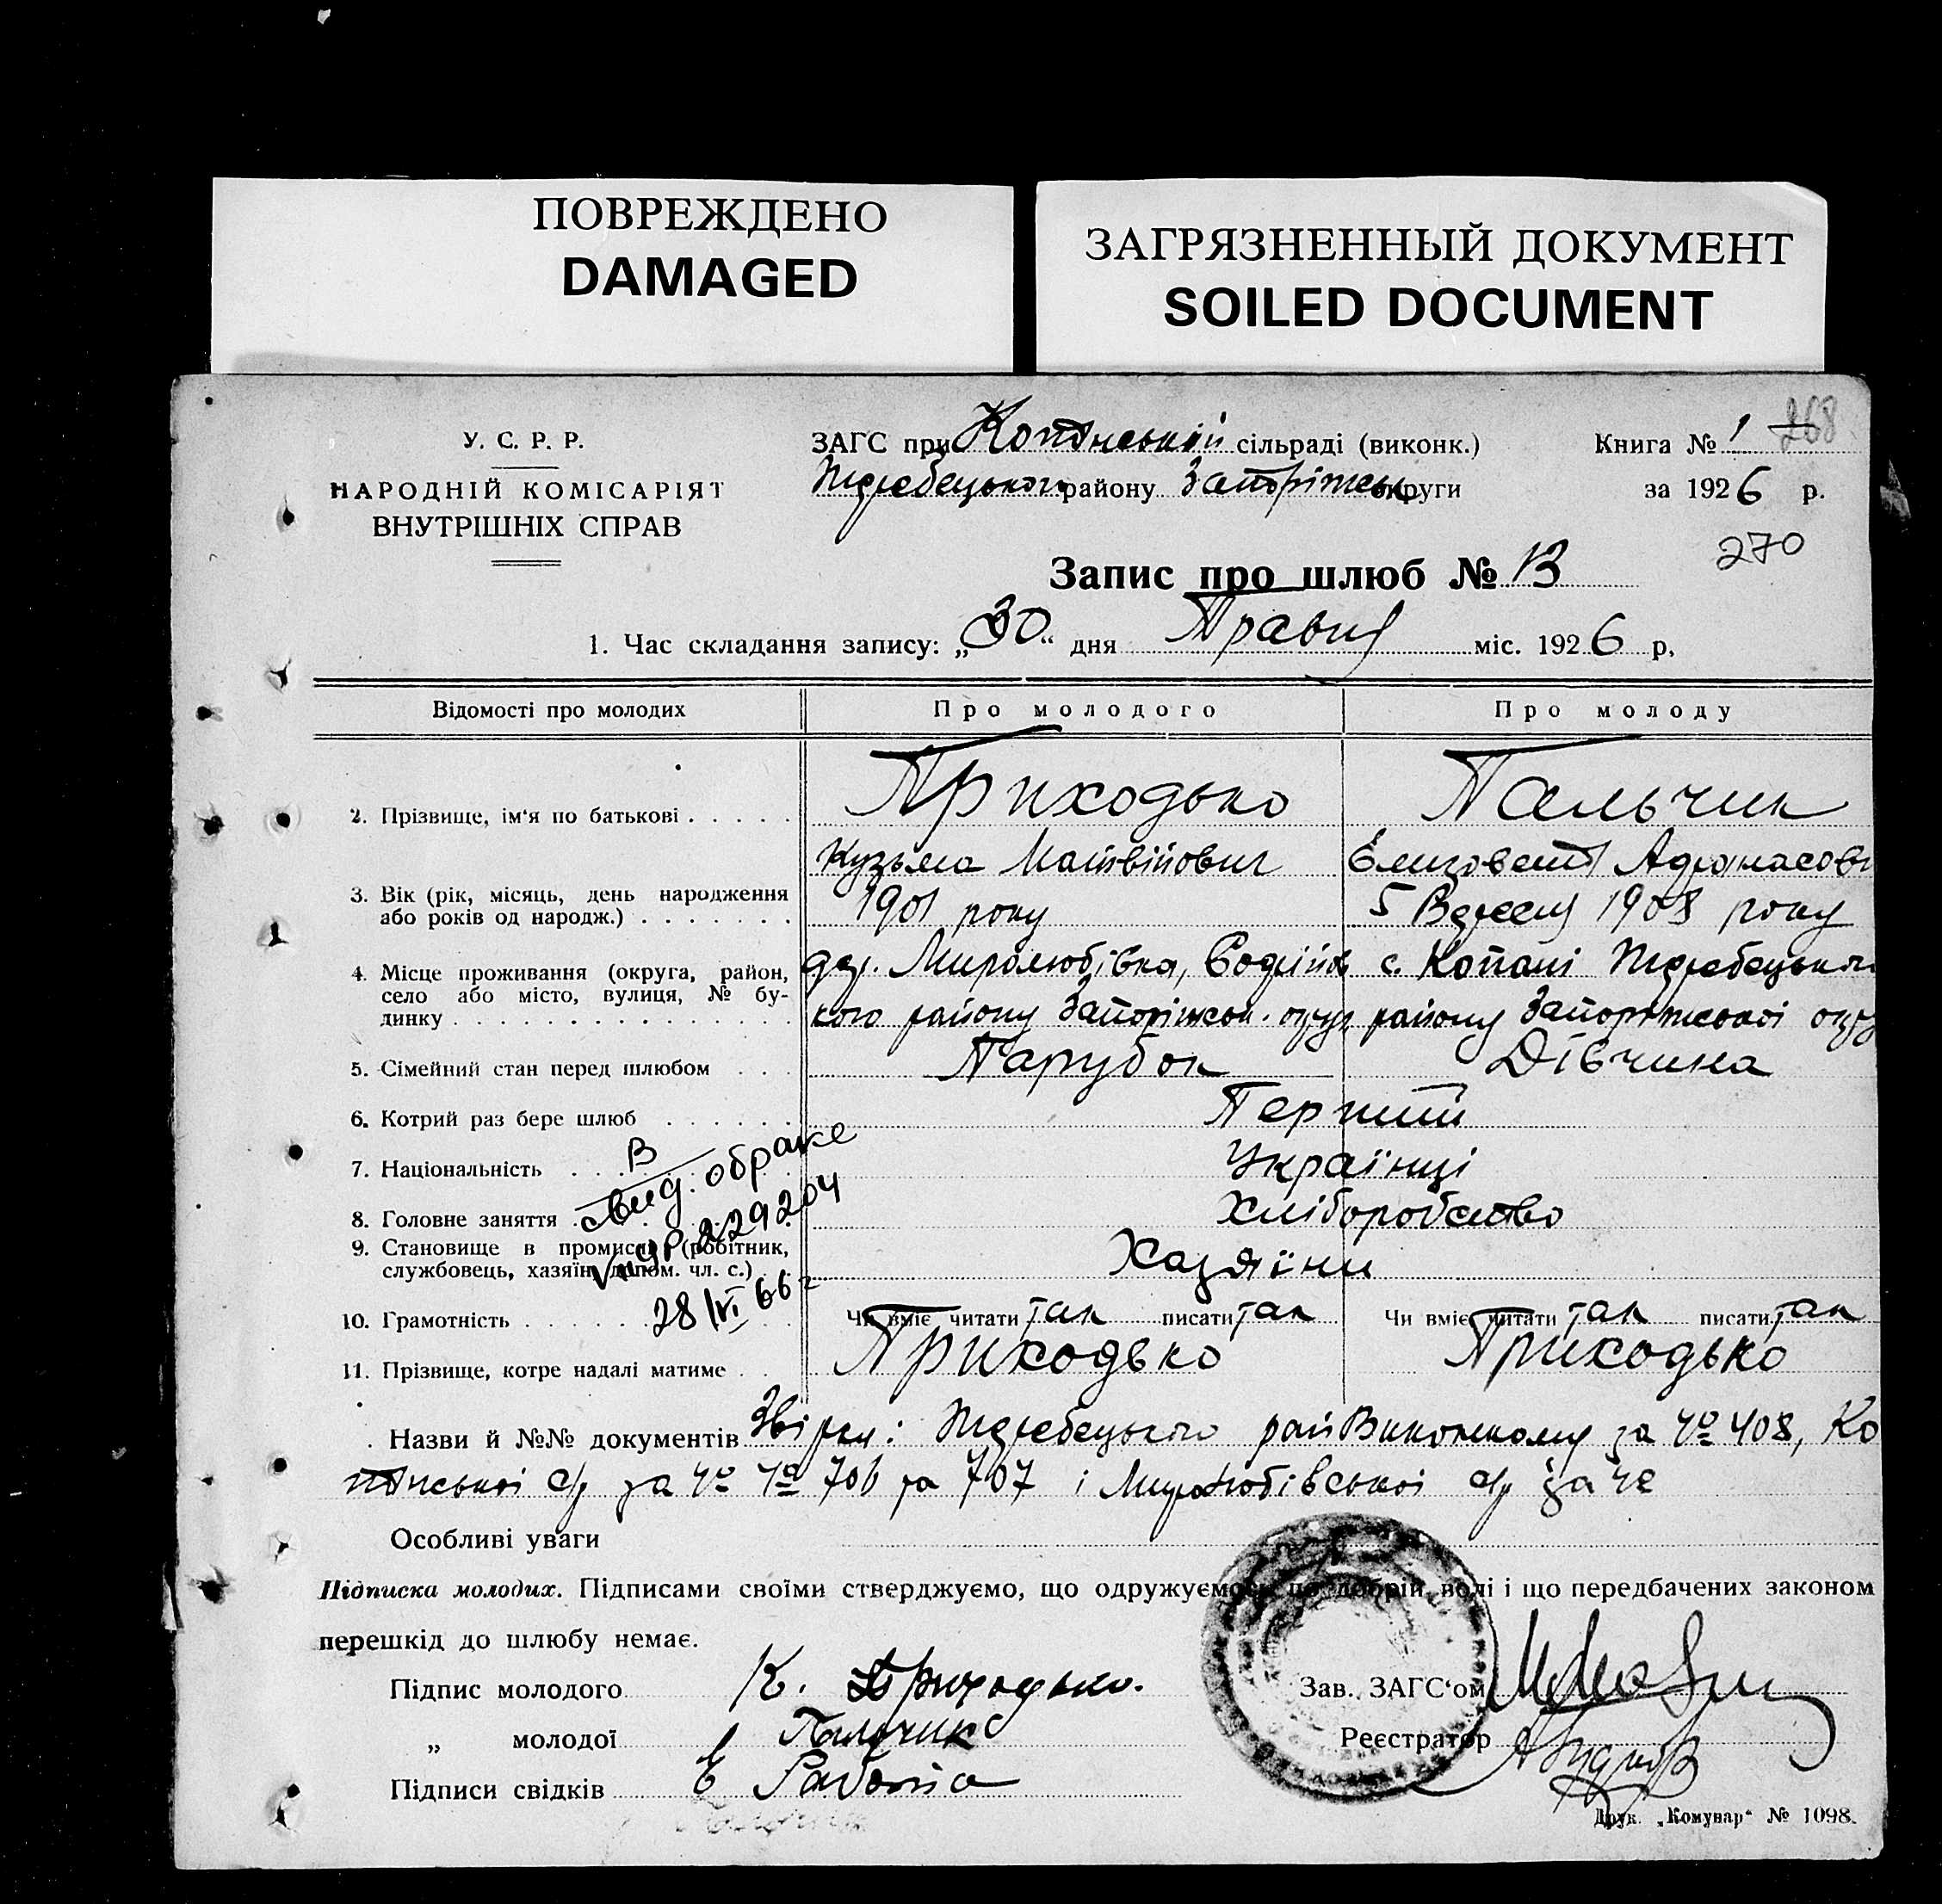 ПОВРЕЖДЕНО
DAMAGED
ЗАГРЯЗНЕННЫЙ ДОКУМЕНТ
SOILED DOCUMENT
У. С. Р. Р.
НАРОДНІЙ КОМІСАРІЯТ
ВНУТРІШНІХ СПРАВ
ЗАГС при Копанській сільраді (виконк.)
Жеребецького району Запоріжськ округи
Книга № 1 268
за 1926 р.
270
Запис про шлюб № 13
1. Час складання запису: „30“ дня Травня міс. 1926 р.
Відомості про молодих Про молодого Про молоду
2. Прізвище, ім'я по батькові Приходько Пальчик
Кузьма Матвійович Єлизовета Афанасовн
3. Вік (рік, місяць, день народження або років од народж.) 1901 року 5 Вересня 1908 року
4. Місце проживання (округа, район, село або місто, вулиця, № будинку
дер. Миролюбівка, кого району Запоріжськ. округ
с. Копані Жеребецького району Запоріжської окру
5. Сімейний стан перед шлюбом Парубок Дівчина
6. Котрий раз бере шлюб Перший
7. Національність Українці
8. Головне заняття Хліборобство
9. Становище в промислі (робітник, службовець, хазяїн, допом. чл. с.) Хазяїни
10. Грамотність Чи вміє читати так писати так Чи вміє читати так писати так
11. Прізвище, котре надалі матиме Приходько Приходько
В
свид. о браке
229204
28/VI 66 г
Назви й №№ документів Жеребецького райВиконкому за № 408, Ко
панської с/р за № № 706 та 707 і Миролюбівської с/р за №
Особливі уваги
Підписка молодих. Підписами своїми стверджуємо, що одружуємось по добрій волі і що передбачених законом
перешкід до шлюбу немає.
Підпис молодого К. Приходько.
„ молодої Є Пальчик
Підписи свідків Работа
Зав. ЗАГС'ом
Реєстратор
Друк. „Комунар“ № 1098.